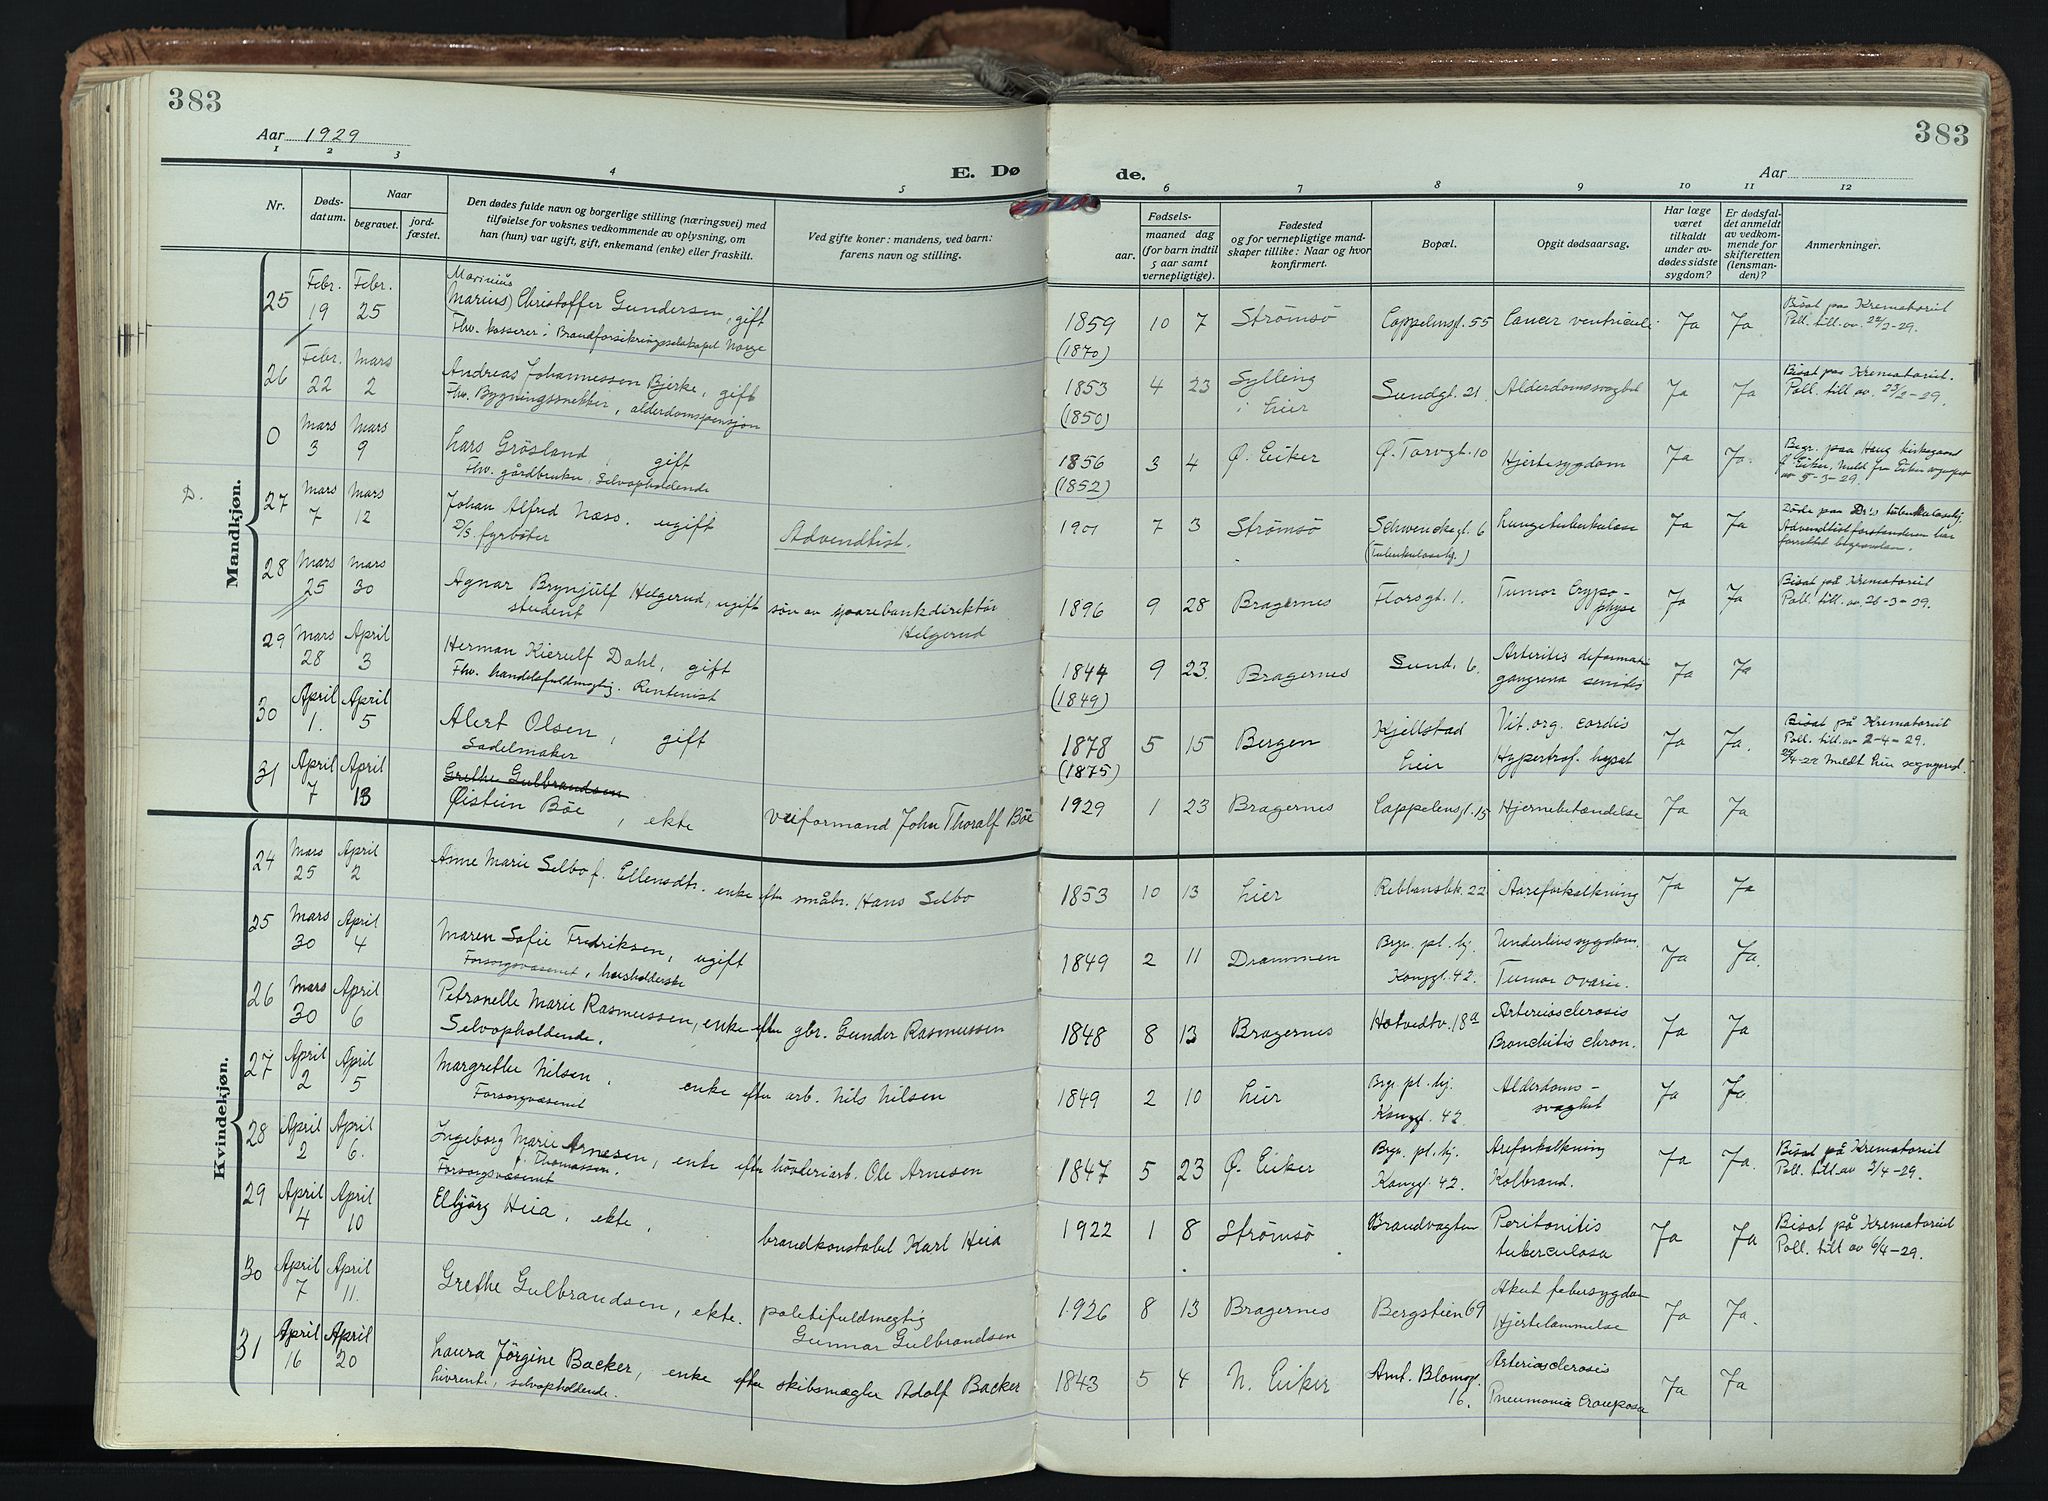 383
383
Aar 1929
E. Dø
de.
Aar
1 2 3 4 5 6 7 8 9 10 11 12
Nr.
Døds-
datum.
Naar
begravet.
jord-
fæstet.
Den dødes fulde navn og borgerlige stilling (næringsvei) med
tilføielse for voksnes vedkommende av oplysning, om
han (hun) var ugift, gift, enkemand (enke) eller fraskilt.
Ved gifte koner: mandens, ved barn:
farens navn og stilling.
Fødsels-
aar.
maaned dag
(for barn indtil
5 aar samt
vernepligtige).
Fødested
og for vernepligtige mand-
skaper tillike: Naar og hvor
konfirmert.
Bopæl.
Opgit dødsaarsag.
Har læge
været
tilkaldt
under av-
dødes sidste
sygdom?
Er dødsfal-
det anmeldt
av vedkom-
mende for
skifteretten
(lensman-
den)?
Anmerkninger.
Mandkjøn.
25 Febr. 19 Febr. 25
Marinius
(Marius) Christoffer Gundersen, gift
Fhv. kasserer i Brandforsikringsselskapet Norge
1859 10 7 Strømsö Cappelensgt. 55 Cancer ventriculi Ja Ja
(1870)
Bisat paa Krematoriet
Poll. till. av. 22/2-29.
26 Febr. 22 Mars 2
Andreas Johannessen Bjerke, gift
Fhv. Bygningssnekker, alderdomspensjon
1853 4 23 Sylling
i Lier Sundgt. 21 Alderdomssvaghet Ja Ja
(1850)
Bisat paa Krematoriet.
Poll. till av. 25/2-29.
0 Mars 3 Mars 9
Lars Grösland, gift
Fhv. gårdbruker, Selvopholdende
1856 3 4 Ø. Eiker Ø. Torvgt. 10 Hjertesygdom Ja Ja.
(1852)
Begr. paa Haug kirkegaard
Ø. Eiker, meld fra Eiker
av 5-3-29.
D.
27 Mars 7 Mars 12
Johan Alfred Næss. ugift
D/S. fyrböter
Advendtist.
1901 7 3 Strømsö Schwenckegt. 6 Lungetuberkulose Ja Ja
(Tuberkulosehj.)
Döde paa Dr's tuberkulosehj.
Advendtistforstanderen har
forrettet begravelsen.
28 Mars 25 Mars 30
Agnar Brynjulf Helgerud, ugift sön av sparebankdirektör
student Helgerud
1896 9 28 Bragernes Florsgt. 1. Tumor Crypo-
physe Ja Ja
Bisat på Krematoriet
Poll. till. av. 26-3-29.
29 Mars 28 April 3
Herman Kierulf Dahl, gift
Fhv. handelsfuldmegtig. Rentenist
1844 9 23. Bragernes Sund. 6. Arteritis deformans
gangrena senilis Ja Ja
(1849)
30 April 1. April 5
Alert Olsen, gift
Sadelmaker
1878 5 15 Bergen Kjellstad
Lier Vit. org. cordis
Hypertrof. hepat Ja Ja.
(1875)
Bisat på Krematoriet
Poll. till. av 2-4-29.
31 April 7 April 13
Grethe Gulbrandsen
Øistein Böe, ekte veiformand John Thoralf Böe
1929 1 23 Bragernes Cappelensgt. 15 Hjernebetændelse Ja Ja
Kvindekjøn.
24 Mars 25 April 2
Anne Marie Selbo f. Ellensdtr. enke efter småbr. Hans Selbo
1853 10 13 Lier Rebbansbk. 22 Aareforkalkning Ja Ja
25 Mars 30 April 4
Maren Sofie Fredriksen, ugift
Forsorgsvæsenet, husholderske
1849 2 11 Drammen Brgr. pl. hj.
Konggt. 42. Underlivssygdom.
Tumor ovarie. Ja Ja.
26 Mars 30 April 6
Petronelle Marie Rasmussen, enke efter gbr. Gunder Rasmussen
Selvopholdende.
1848 8 13 Bragernes Hotvedtv. 18a Arteriosclerosis
Bronchitis chron. Ja Ja
27 April 2 April 5
Margrethe Nilsen, enke efter arb. Nils Nilsen
Forsorgsvæsenet
1849 2 10 Lier Brgr. pl. hj.
Konggt. 42 Alderdoms-
svaghet Ja Ja
28 April 2 April 6.
Ingeborg Marie Arnesen, enke efter höveleriarb. Ole Arnesen
f. Thomassen.
Forsorgsvæsenet
1847 5 23 Ø. Eiker Brgr. pl. hj.
Konggt. 42. Areforkalkning
Kolbrand. Ja Ja.
Bisat på Krematoriet
Poll. till. av 3/4-29.
29 April 4 April 10
Elbjörg Heia, ekte, brandkonstabel Karl Heia
1922 1 8 Strømsö Brandvagten Peritonitis
tuberculosa Ja Ja
Bisat på Krematoriet
Poll. till av 6/4-29.
30 April 7 April 11.
Grethe Gulbrandsen, ekte. politifuldmegtig
Gunnar Gulbrandsen
1926 8 13 Bragernes Bergstien 69 Akut febersygdom
Hjertelammelse Ja Ja.
31 April 16 April 20
Laura Jørgine Backer, enke efter skibsmægler Adolf Backer
Livrente, selvopholdende.
1843 5 4 N. Eiker Amt. Blomsgt.
16. Arteriosclerosis
Pneumonia Crouposa Ja Ja